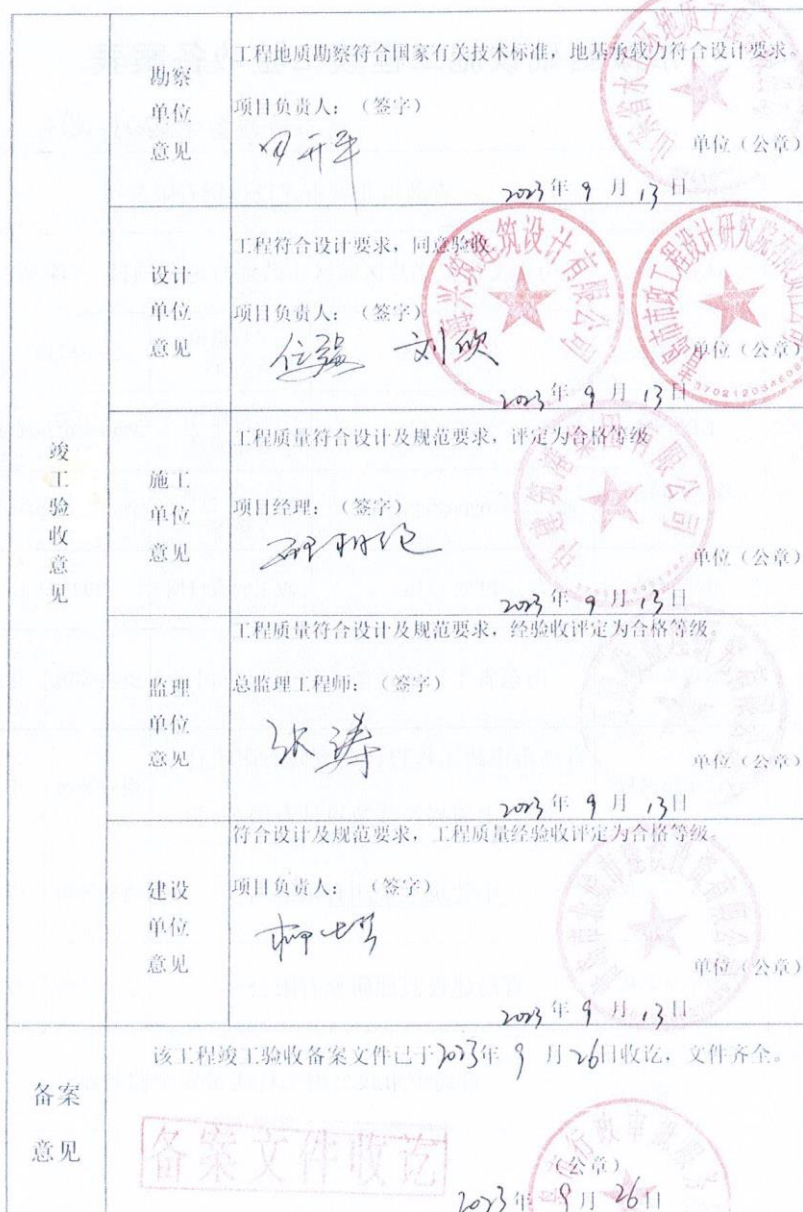 竣工验收意见
勘察单位意见
工程地质勘察符合国家有关技术标准，地基承载力符合设计要求。
项目负责人：（签字）
单位（公章）
2023年 9 月 13日
设计单位意见
工程符合设计要求，同意验收
项目负责人：（签字）
刘欣
单位（公章）
2023年 9 月 13日
3702120
施工单位意见
工程质量符合设计及规范要求，评定为合格等级
项目经理：（签字）
单位（公章）
2023年 9 月 13日
监理单位意见
工程质量符合设计及规范要求，经验收评定为合格等级。
总监理工程师：（签字）
张涛
单位（公章）
2023年 9 月 13日
建设单位意见
符合设计及规范要求，工程质量经验收评定为合格等级。
项目负责人：（签字）
单位（公章）
2023年 9 月 13日
备案意见
该工程竣工验收备案文件已于2023年 9 月26日收讫，文件齐全。
备案文件收讫
（公章）
2023年 9月 26日